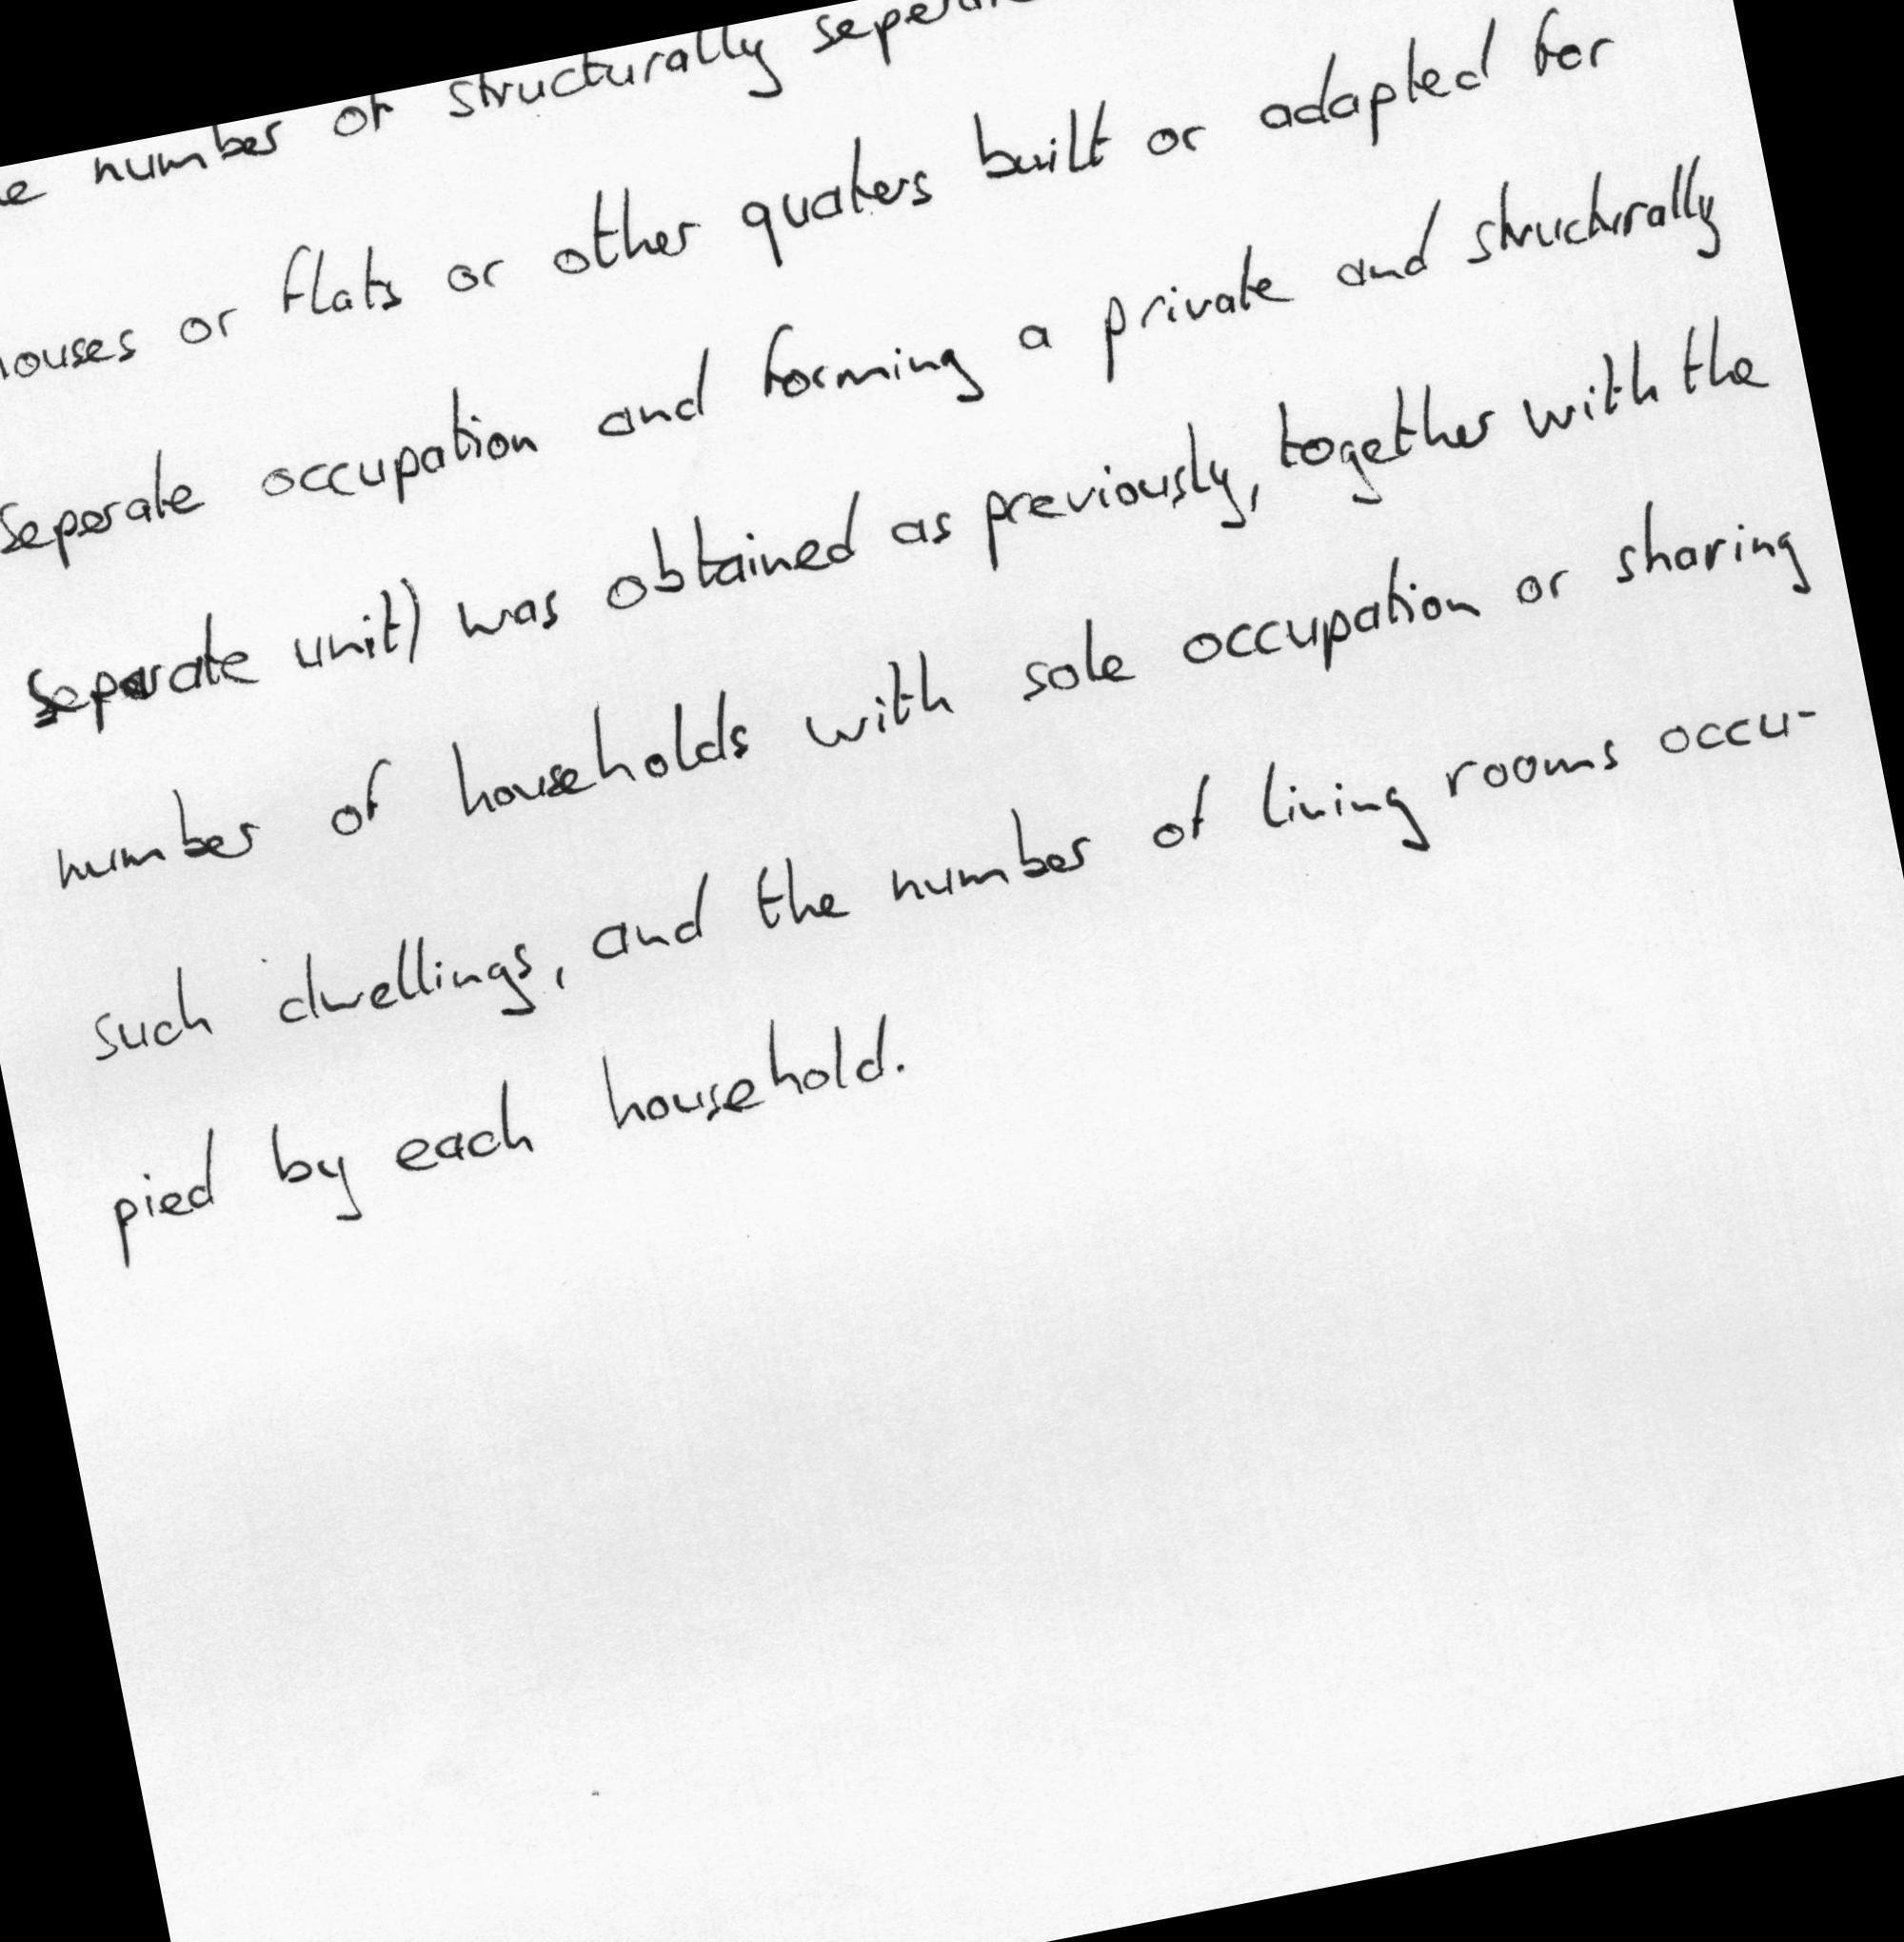 number of structurally
or flats or other quaters built or adapted for
seperate occupation and forming a private and structurally
separate unit) was obtained as previously, together with the
number of households with sole occupation or sharing
such dwellings, and the number of living rooms occu-
pied by each household.